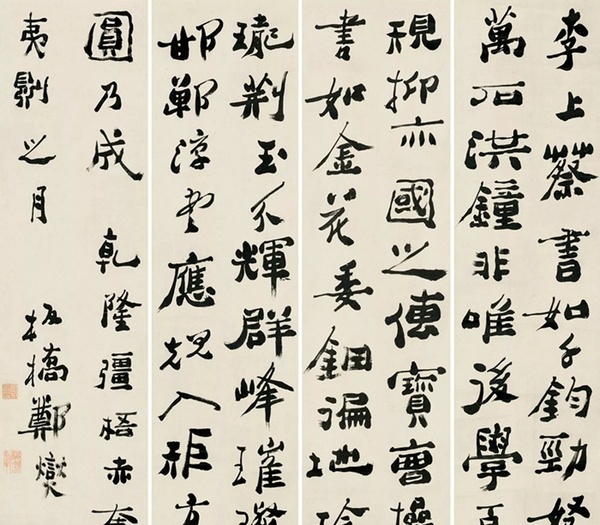 李上蔡書如千鈞勁弩
萬石洪鐘非唯後學
規抑亦國之傳寶曹操
書如金花委鈿遍地玲
瓏荊玉分輝群峰璀璨
邯鄲淳書應規入矩方
圓乃成 乾隆彊梧赤奮
夷則之月 板橋鄭燮